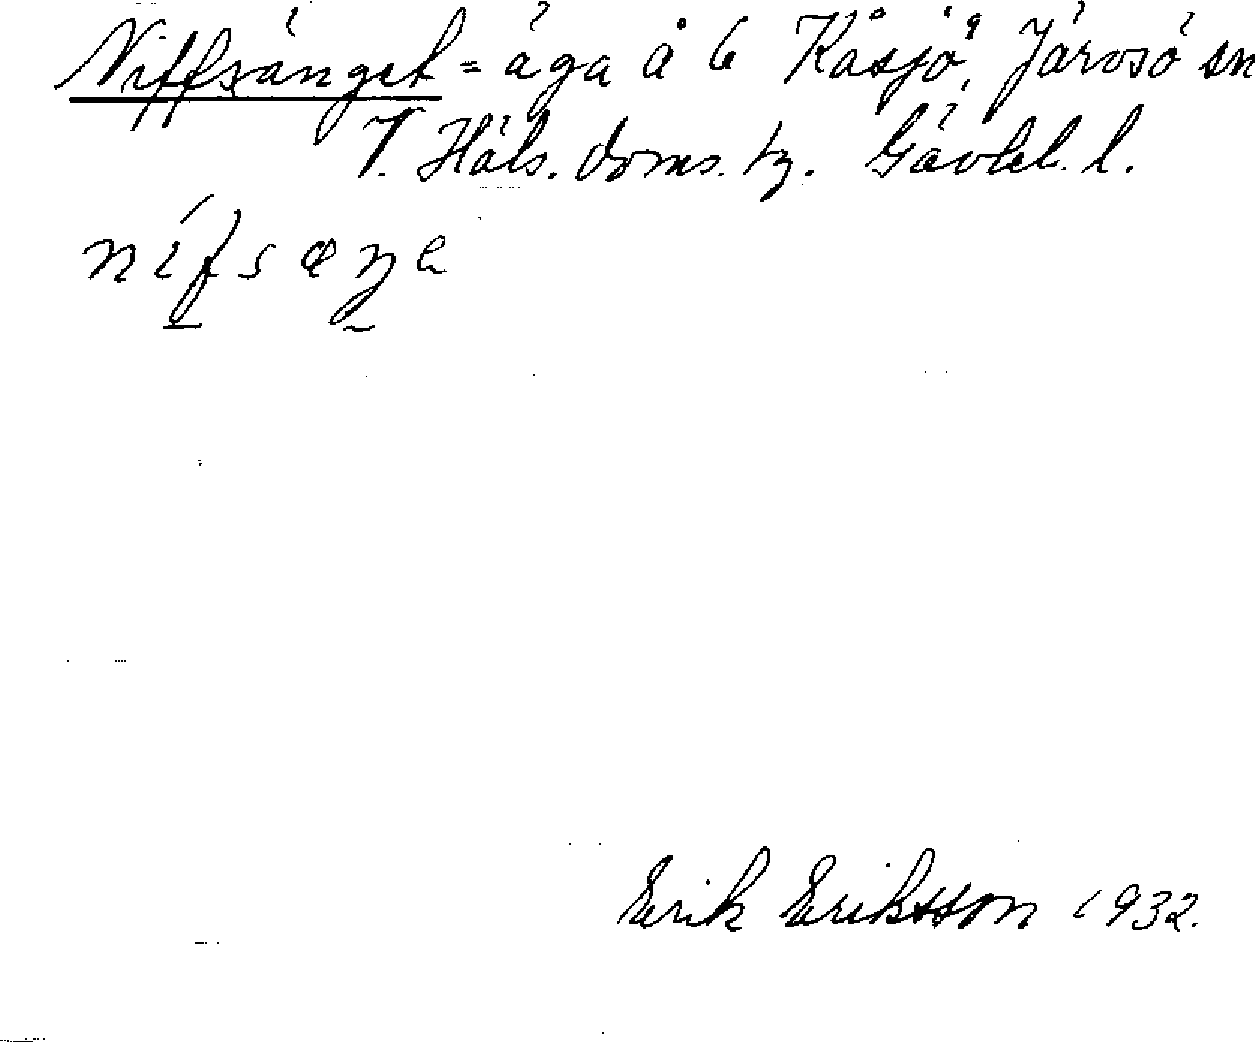 Niffsänget = äga å 6 Kåsjö, Järvsö sn
V. Häls. doms. tg. Gävlel. l.
Erik Eriksson 1932.